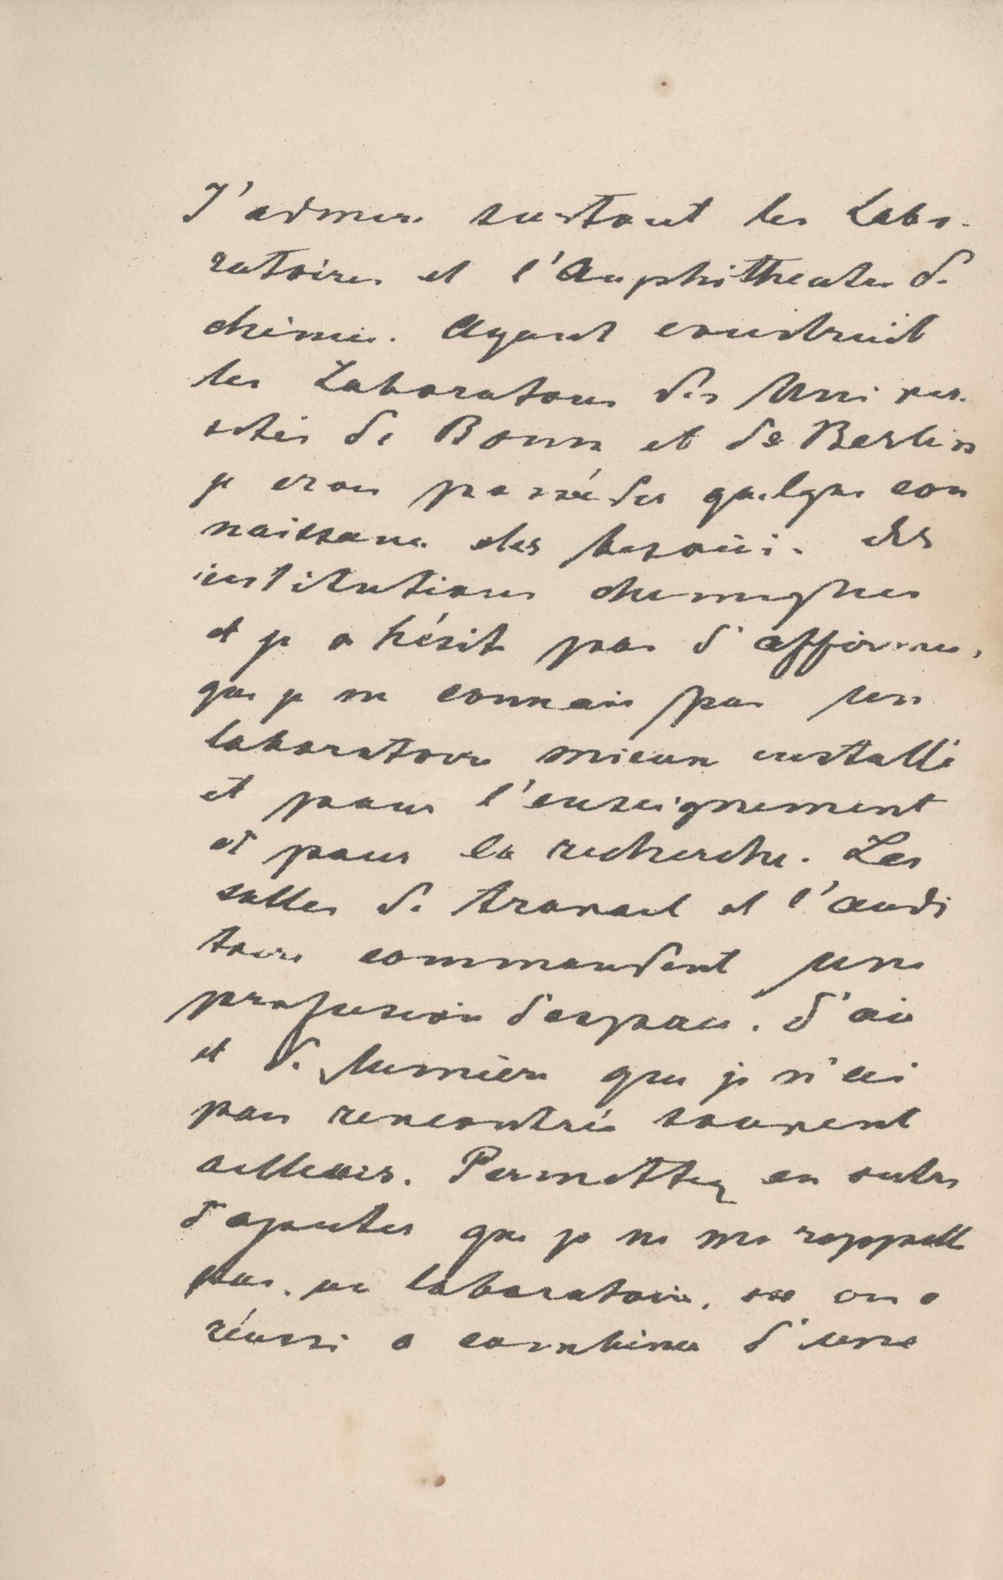 J'admire surtout les Labo-
ratoires et l'Amphitheatre de
chimie. Ayant construit
les Laboratoires des Univer-
sités de Bonn et de Berlin
je crois posséder quelque con
naissance des besoins des
institutions chimiques
et je n'hésite pas d'affirmer,
que je ne connais pas un
laboratoire mieux installé
et pour l'enseignement
et pour la recherche. Les
salles de travail et l'audi
toire commandent une
profusion d'espace, d'air
et de lumière que je n'ai
pas rencontrée souvent
ailleurs. Permettez en outre
d'ajouter que je ne me rappelle
pas un laboratoire, où on a
réussi a combiner d'une